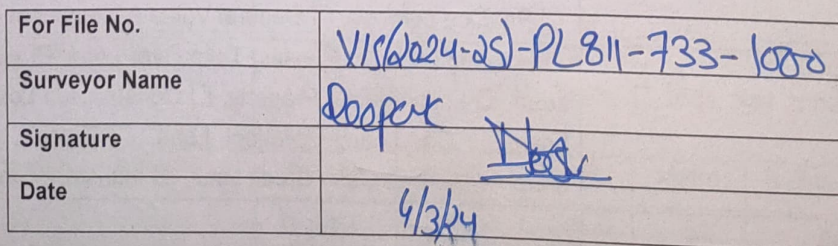 For File No. VIS(2024-25)-PL811-733-1000
Surveyor Name Deepak
Signature
Date 4/3/24